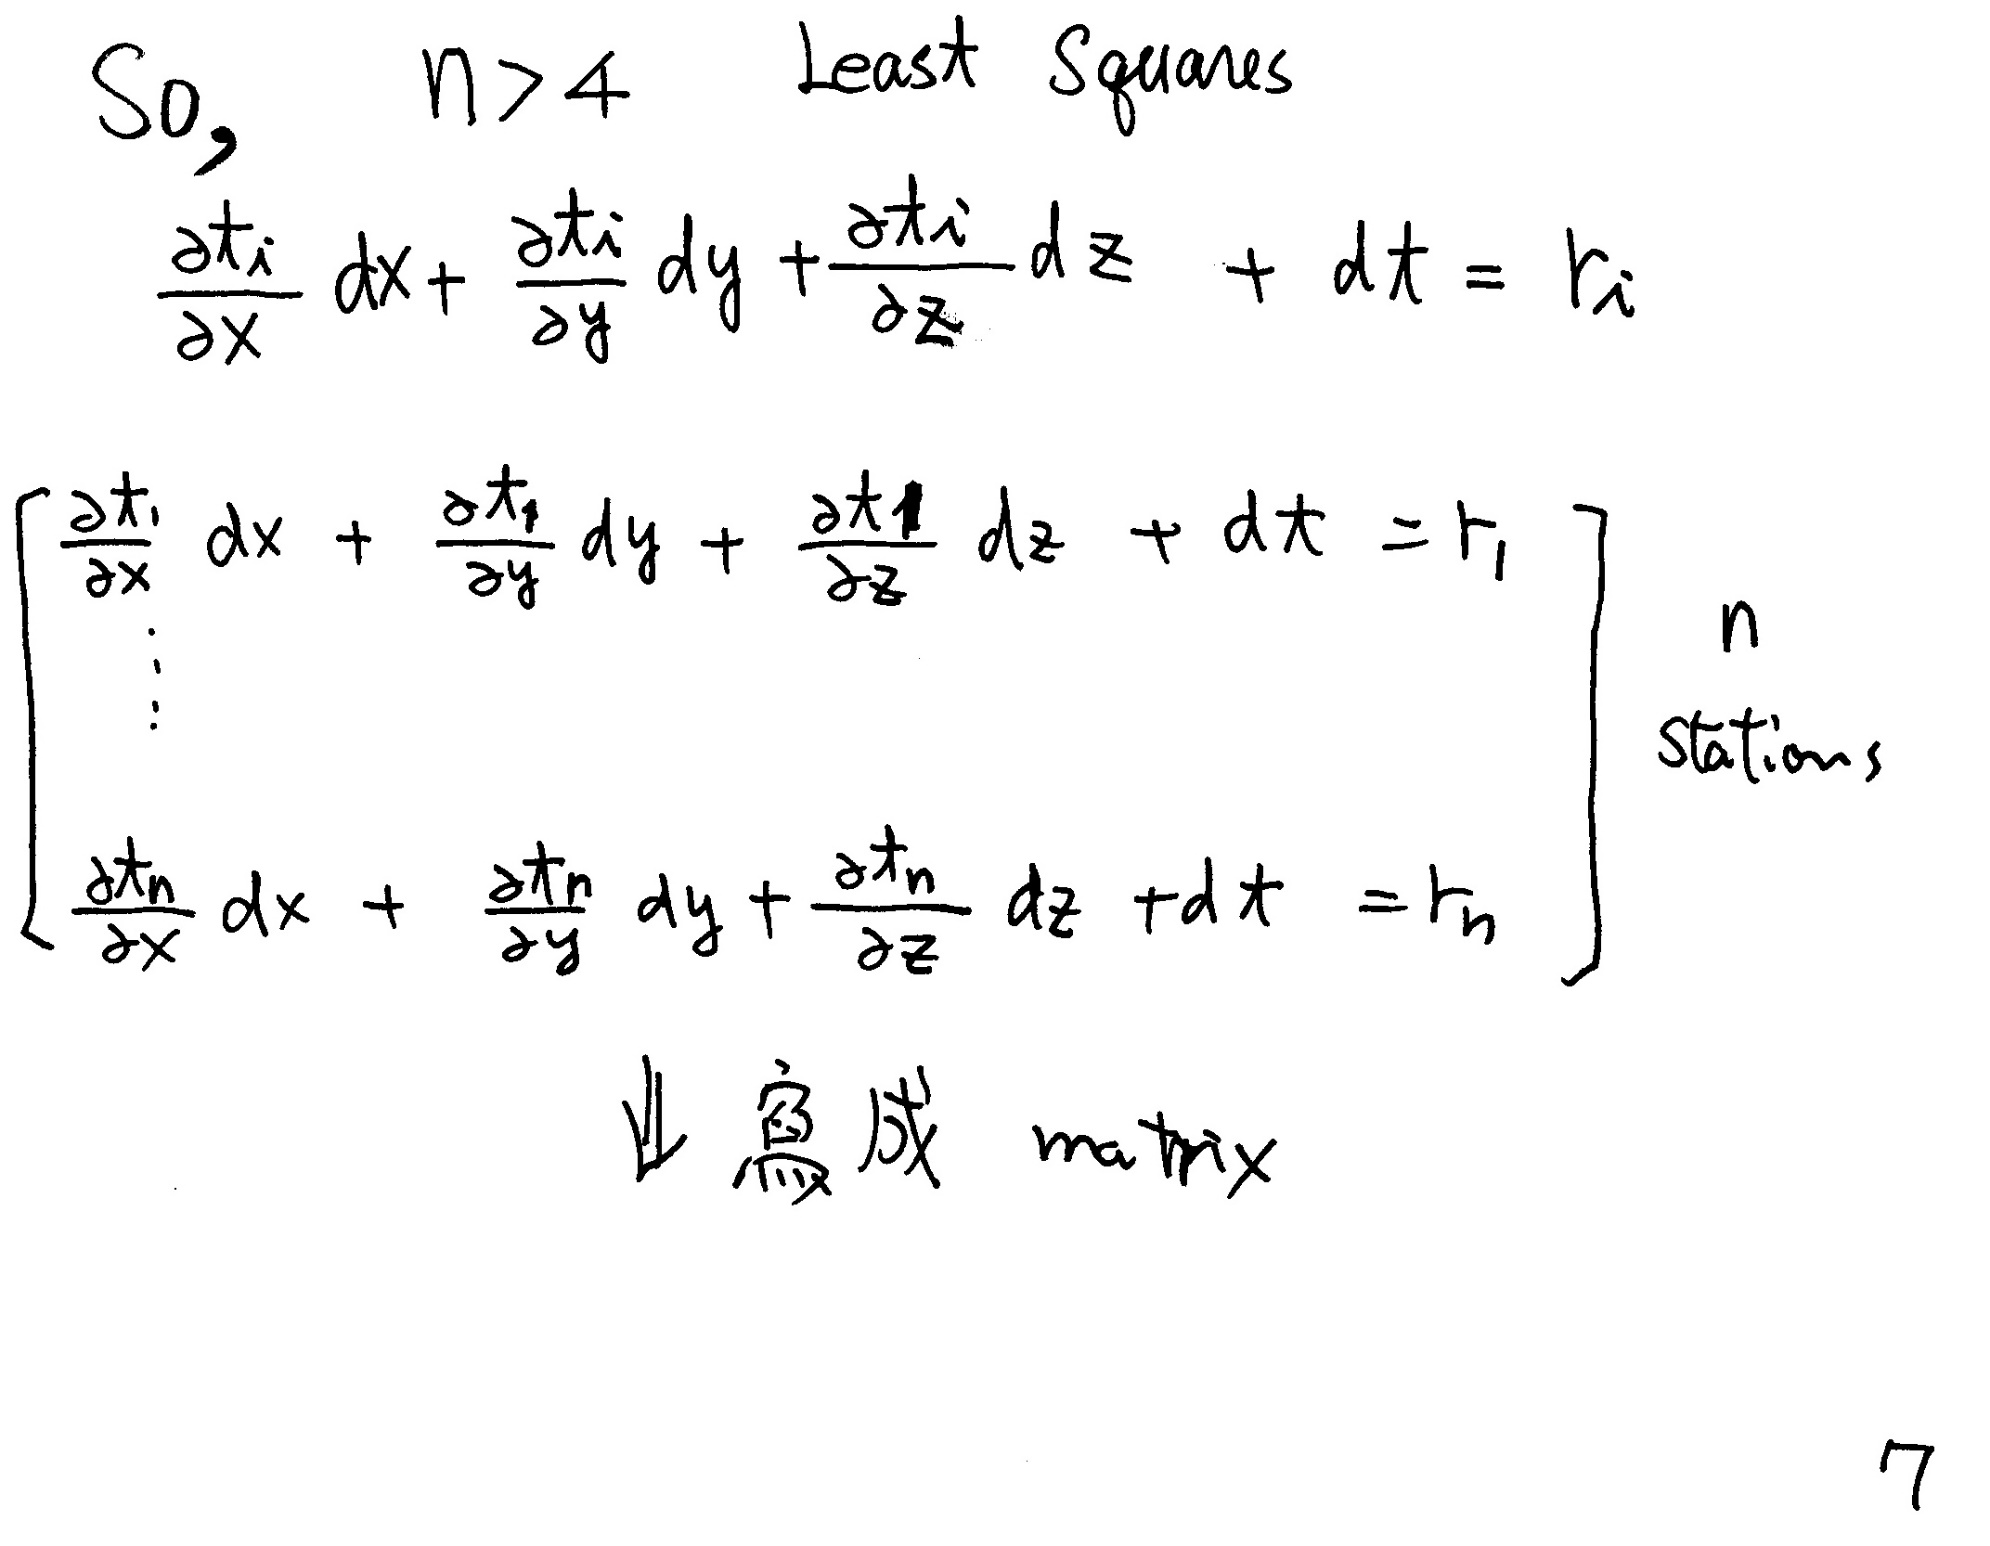 So, n>4 Least Squares
∂ti/∂x dx + ∂ti/∂y dy + ∂ti/∂z dz + dt = ri
∂t1/∂x dx + ∂t1/∂y dy + ∂t1/∂z dz + dt = r1
⋮
n stations
∂tn/∂x dx + ∂tn/∂y dy + ∂tn/∂z dz + dt = rn
⇓ 寫成 matrix
7